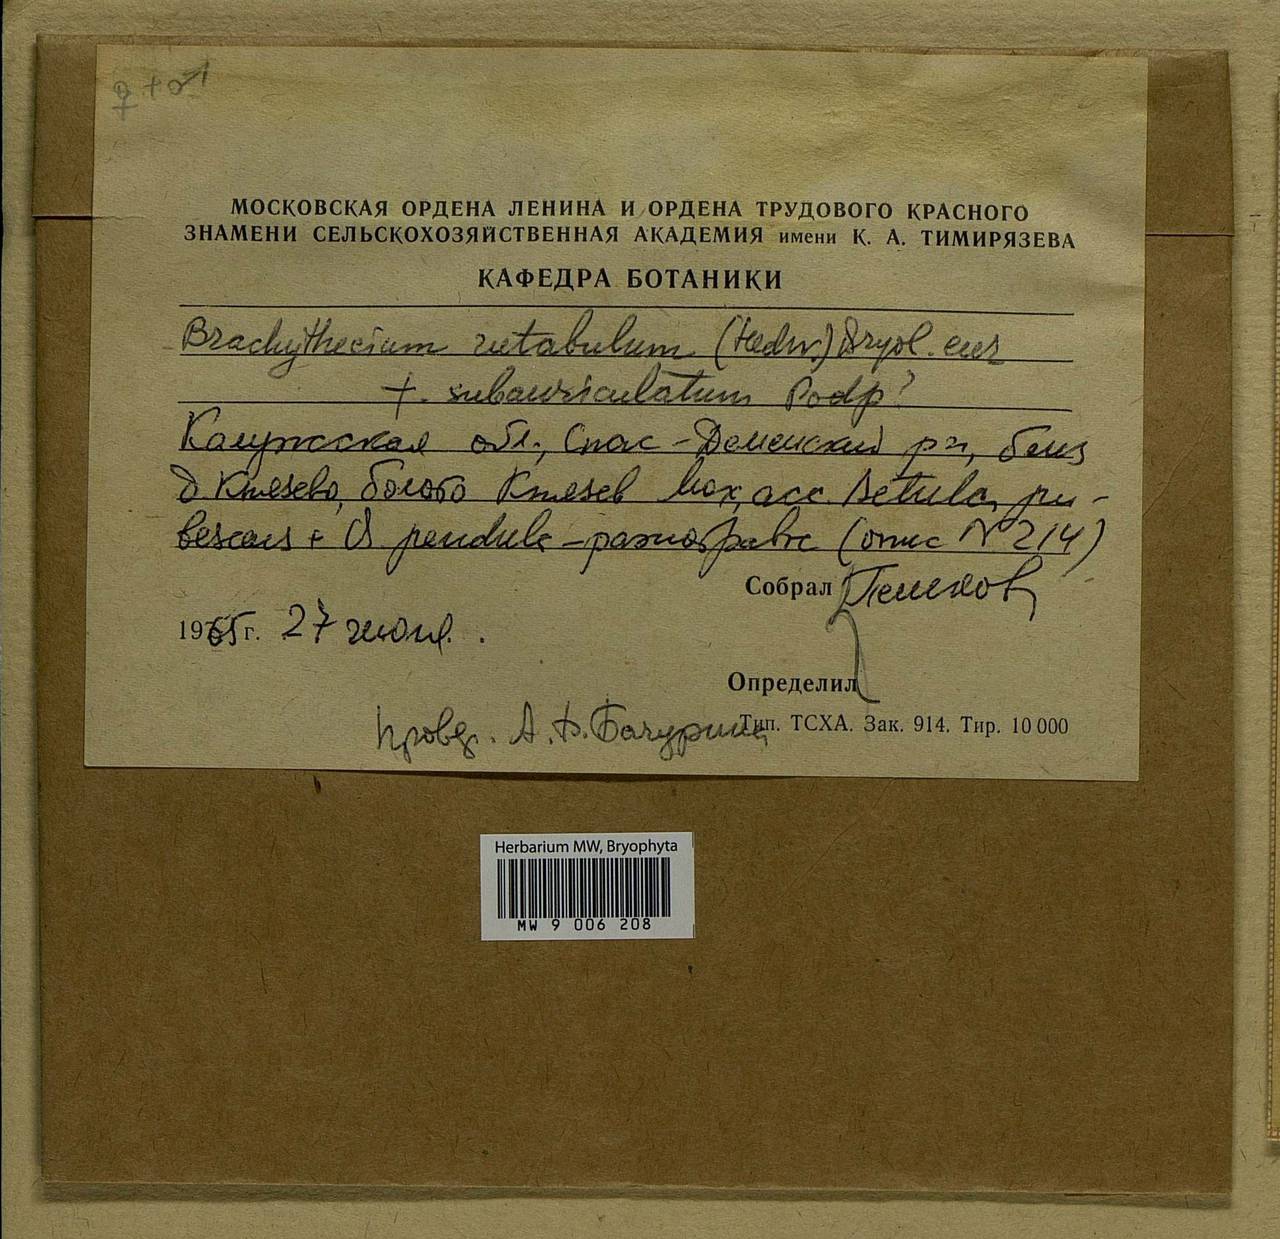 ♀ + ♂
МОСКОВСКАЯ ОРДЕНА ЛЕНИНА И ОРДЕНА ТРУДОВОГО КРАСНОГО
ЗНАМЕНИ СЕЛЬСКОХОЗЯЙСТВЕННАЯ АКАДЕМИЯ имени К. А. ТИМИРЯЗЕВА
КАФЕДРА БОТАНИКИ
Brachythecium rutabulum (Hedw.) Bryol. eur
f. subauriculatum Podp?
Калужская обл., Спас-Деменский р-н, близ
д. Князево, болото Князев Мох, асс. Betula pu-
bescens + B pendula - разнотравье (опис N 214)
Собрал
1965 г. 27 июля.
Определил
Провер. А. Ф. Бачурина
Тип. ТСХА. Зак. 914. Тир. 10 000
Herbarium MW, Bryophyta
MW 9 006 208